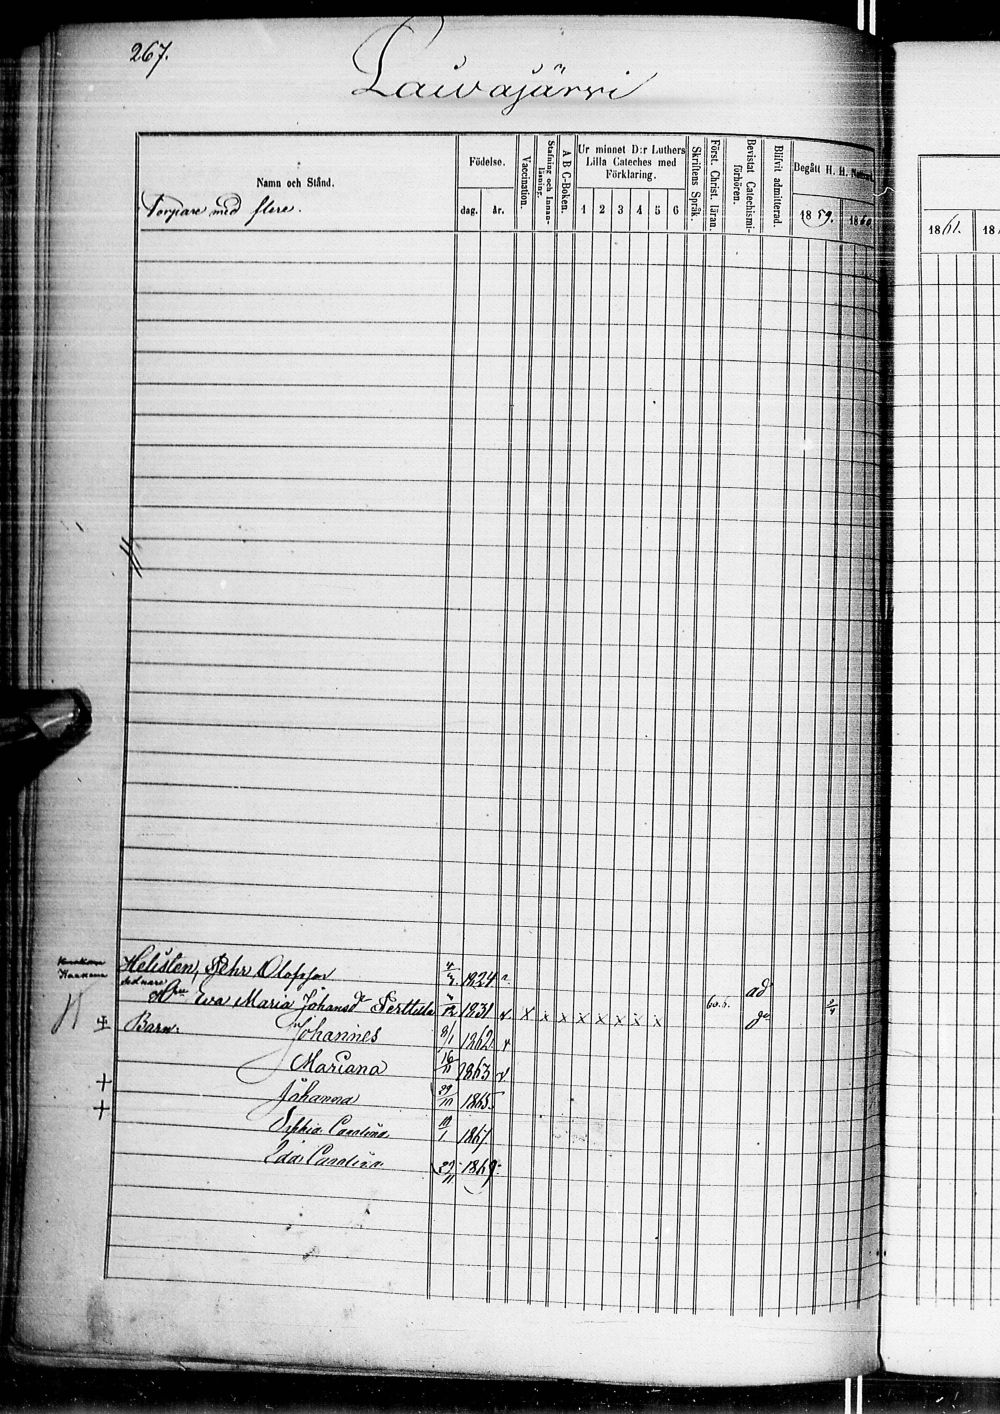 267.
Lauvajärvi
Namn och Stånd.
Torpare med flere.
Födelse.
dag. år.
Vaccination.
Stafning och Innan-läsning.
A B C-Boken.
Ur minnet D:r Luthers
Lilla Cateches med
Förklaring.
1 2 3 4 5 6
Skriftens Språk.
Först. Christ. läran.
Bevistat Catechismi-förhören.
Blifvit admitterad.
Degått H. H. Nattvard
1859. 1860
1861. 18
Helisten, Pehr Olofsson 1824 ad
Hu Eva Maria Johansdr Perttula 1831 v x x x x x x x x
Barn: Johannes 8/1 1862 v
Mariana 1863 v
Johanna 1865
Sophia Carolina 10/1 1867
Ida Carolina 1869